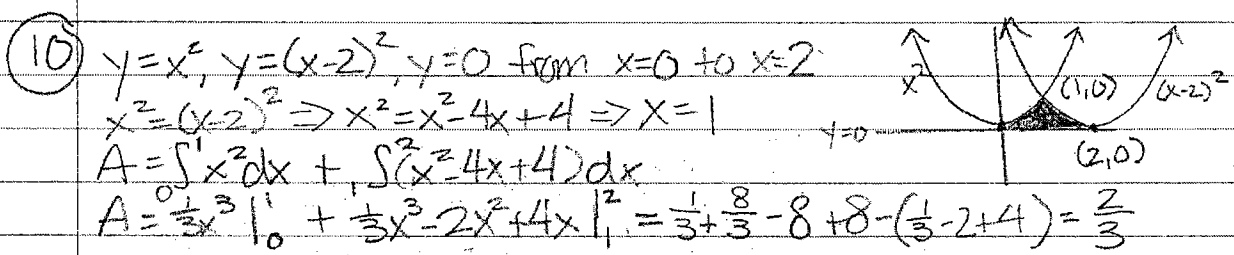 10 y=x², y=(x-2)², y=0 from x=0 to x=2
x²=(x-2)² ⇒ x²=x²-4x+4 ⇒ x=1
A = ₀∫¹ x²dx + ₁∫²(x²-4x+4)dx
A = ⅓x³ |₀¹ + ⅓x³-2x²+4x |₁² = ⅓+8/3-8+8-(⅓-2+4) = ⅔
x²
(1,0)
(x-2)²
y=0
(2,0)